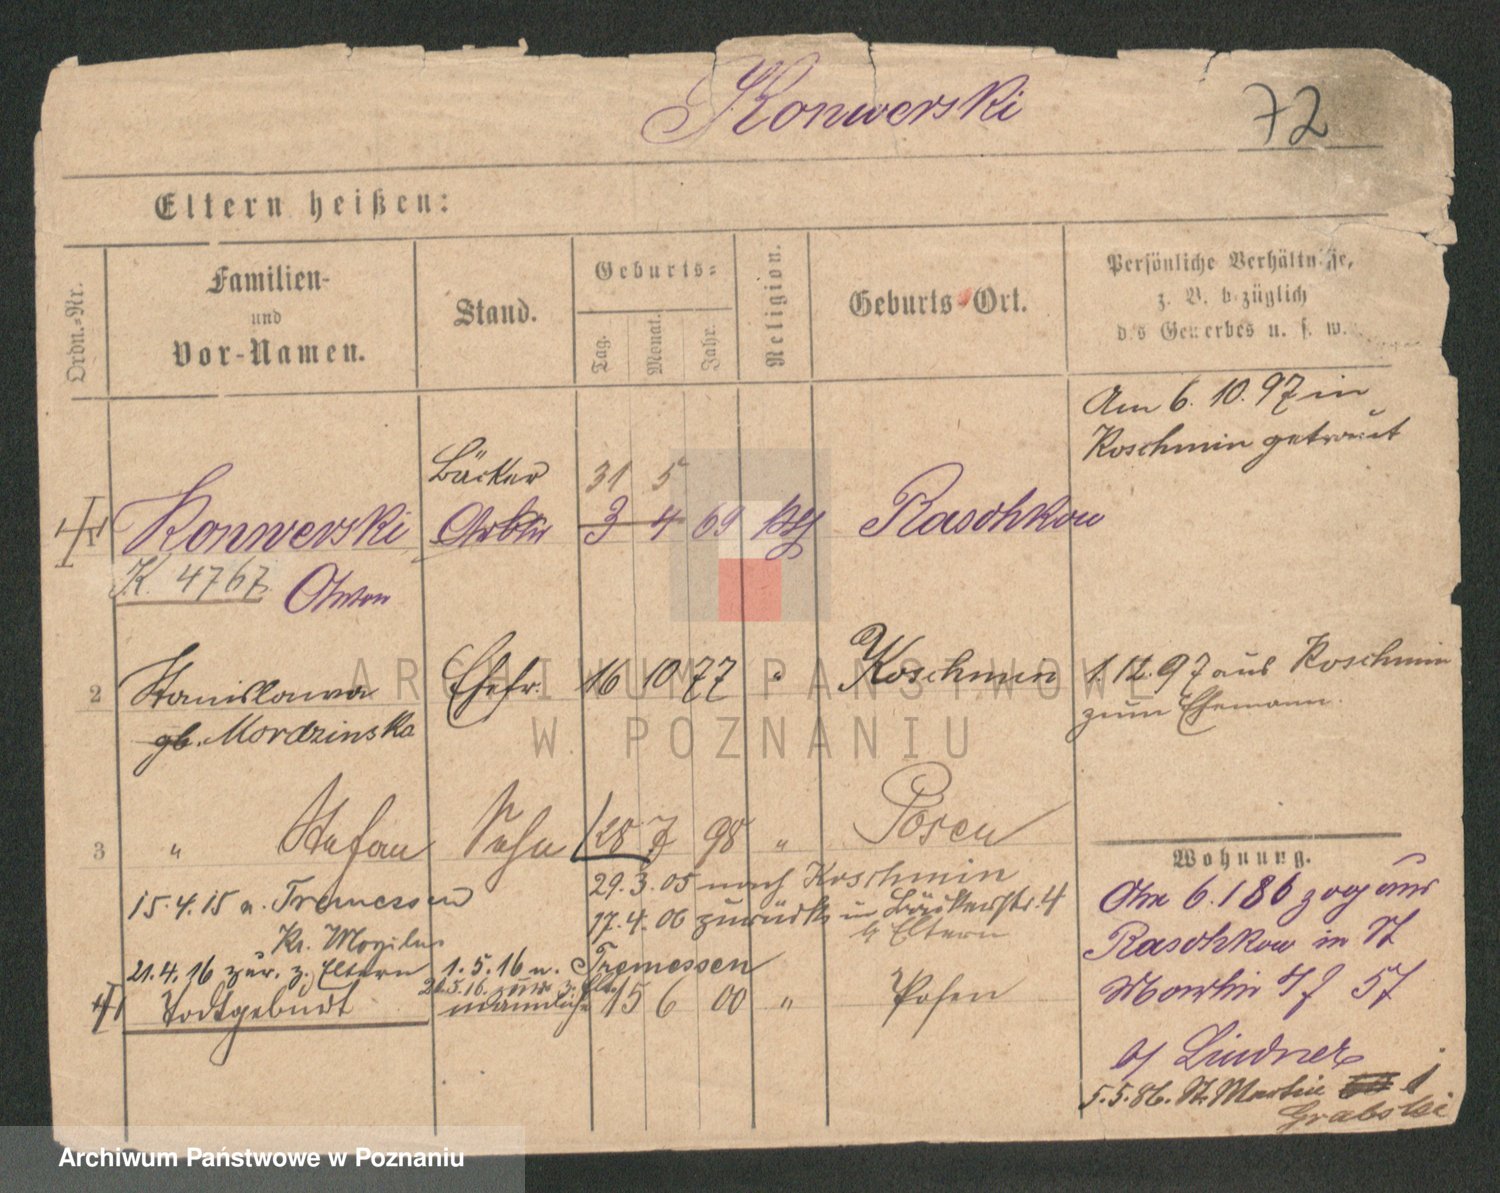 Konwerski
72
Eltern heißen:
Ordn.-Nr.
Familien-
und
Vor-Namen.
Stand.
Geburts-
Tag.
Monat.
Jahr.
Religion.
Geburts-Ort.
Persönliche Verhältnisse,
z. B. bezüglich
des Gewerbes u. s. w.
Am 6. 10. 97 in
Koschmin getraut
Bäcker 31 5
Konwerski Arbtr 3 4 69 kth Raschkow
K. 4767 Anton
2 Stanislawa Ehefr. 16 10 77 " Koschmin 1.12.97 aus Koschmin
gb. Mordzinska zum Ehemann.
3 " Stefan Sohn 28 7 98 " Posen
15.4.15 n. Tremessen
Kr. Mogilno
29.3.05 nach Koschmin
17.4.06 zurück in Bäckerstr. 4
b/ Eltern
21.4.16 zur. z. Eltern 1.5.16 n. Tremessen
Todtgeburt männlich 15 6 00 " Posen
Wohnung.
Am 6.1 86 zog aus
Raschkow in St
Martin 57
b/ Lindner
5.5.86. St. Martin
Grabski
ARCHIWUM PAŃSTWOWE
W POZNANIU
Archiwum Państwowe w Poznaniu